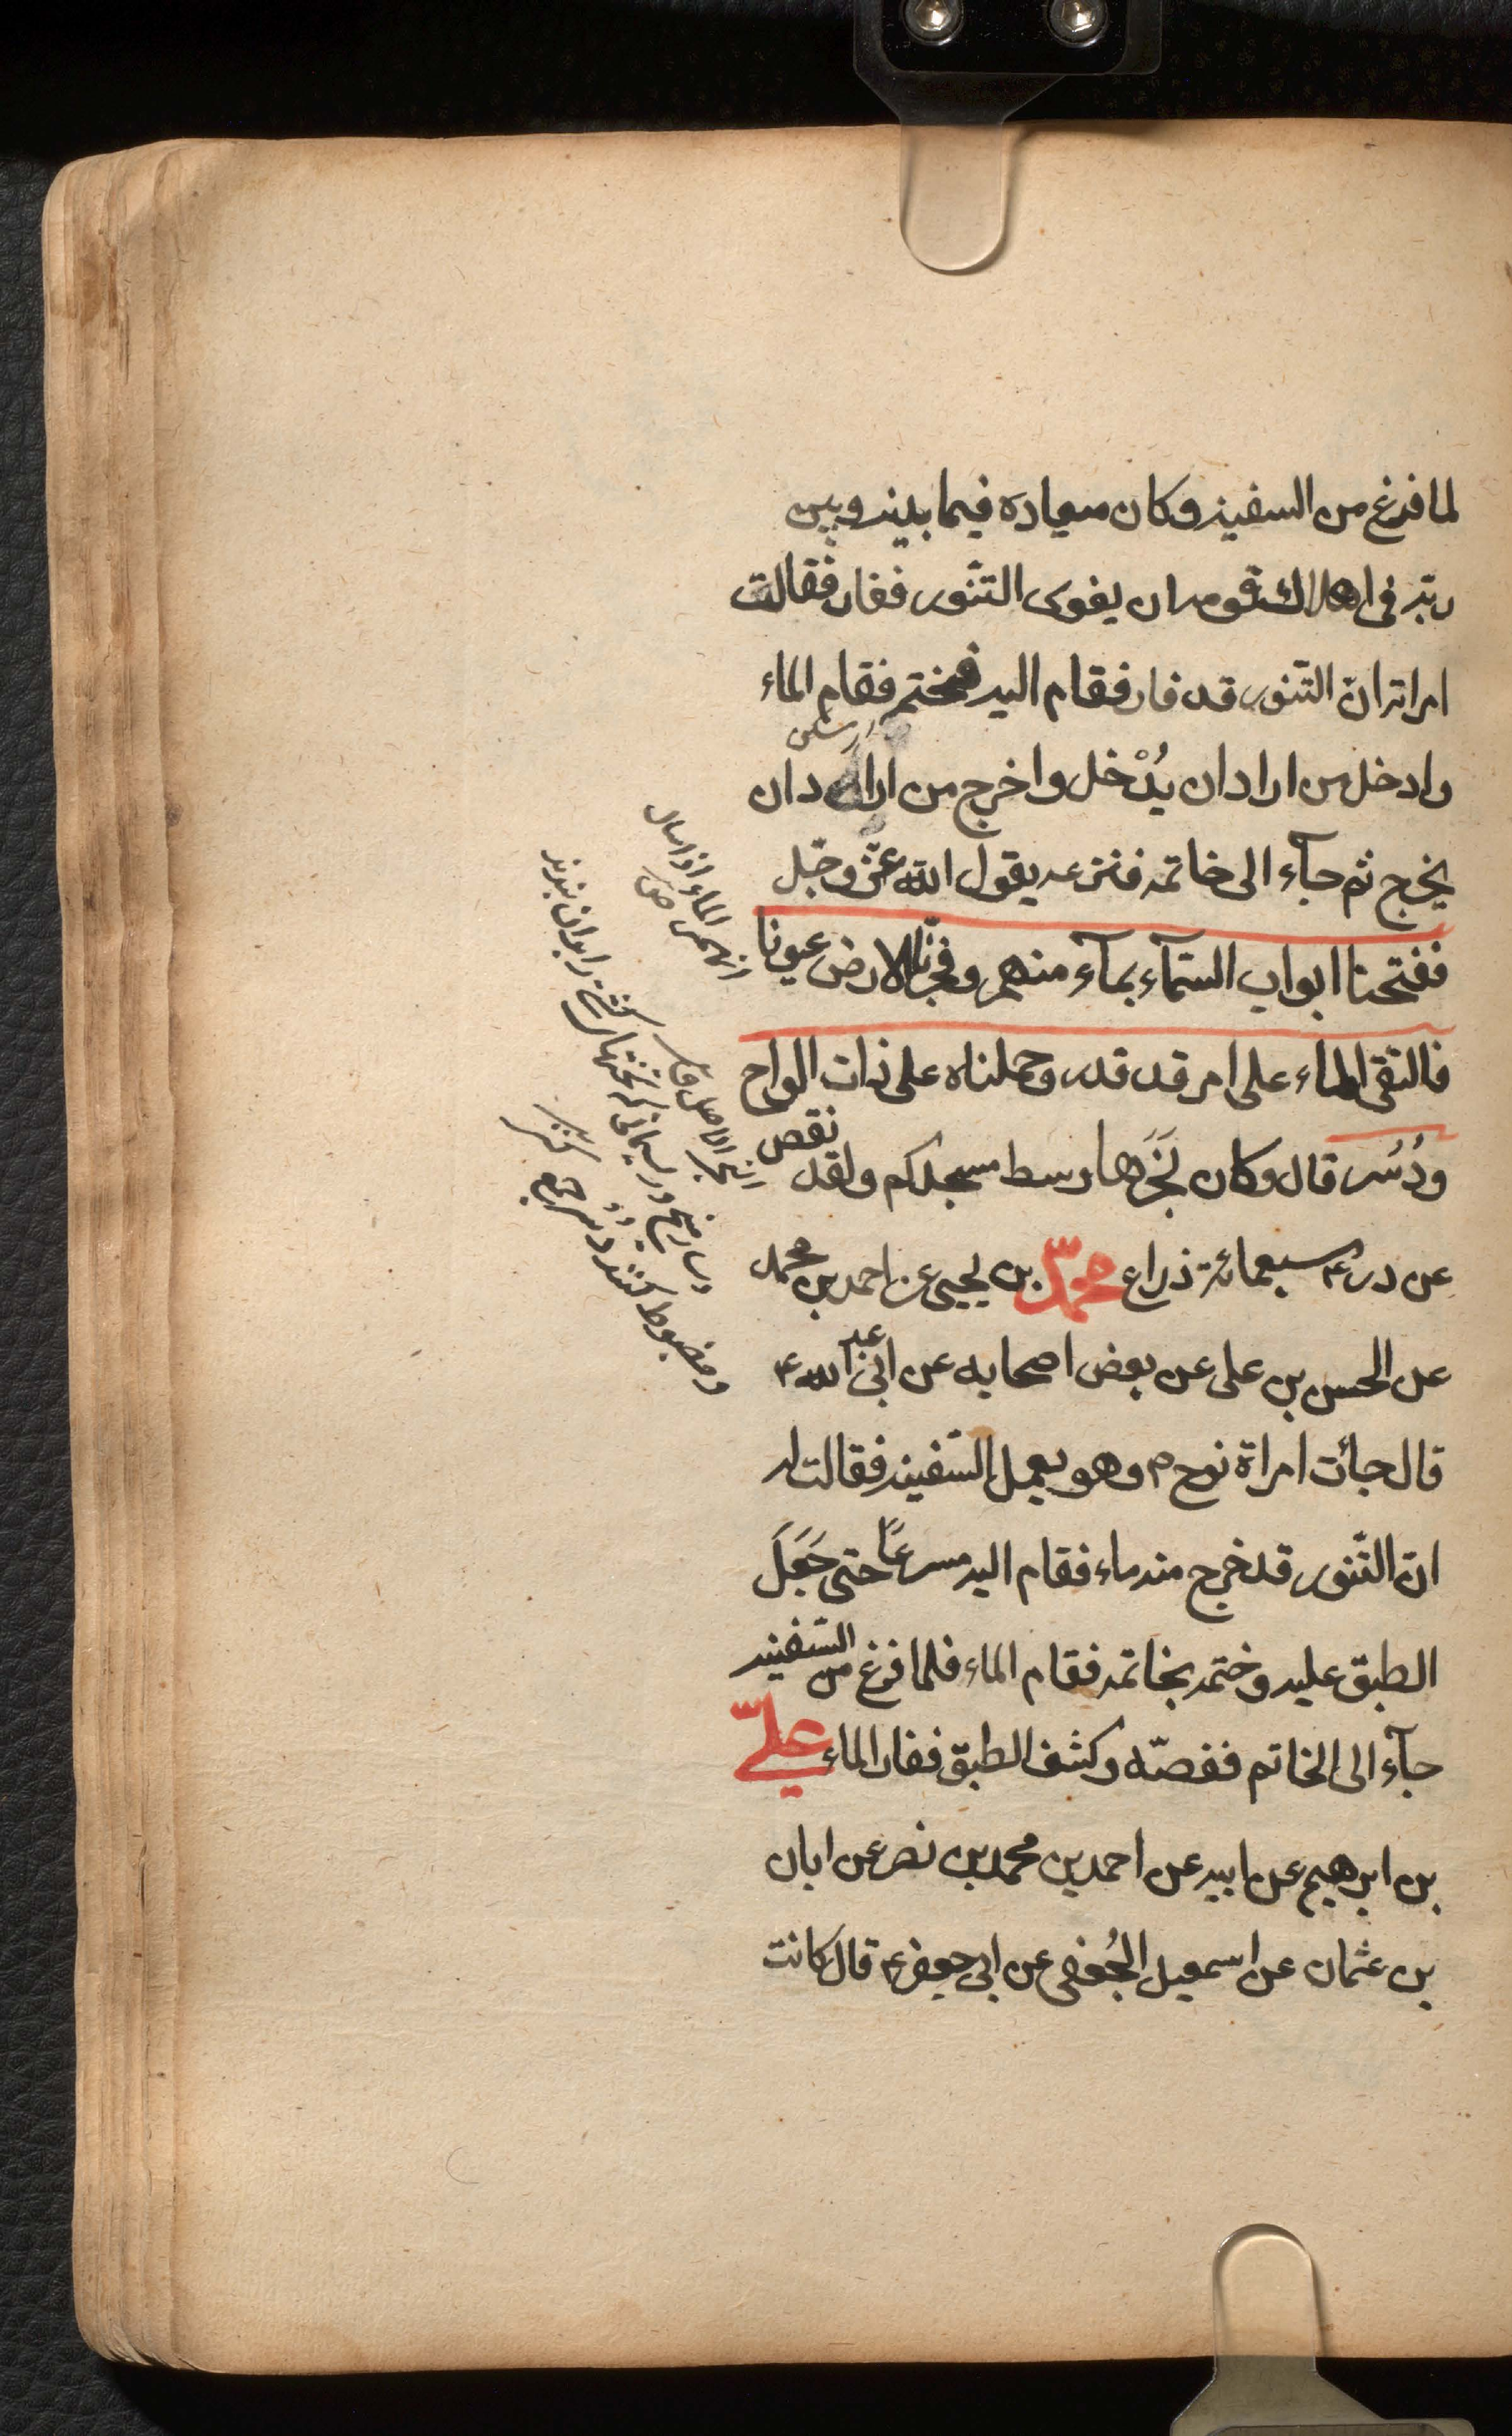 لما فرغ من السفينه وكان ميعاده فيما بينه وبين
ربه فى اهلاك قومه ان يفور التنّور ففار فقالت
امراته انّ التّنور قد فار فقام اليه فختم فقام الماء
وادخل من اراد ان يُدْخل واخرج من اراد ان
يخرج ثم جآء الى خاتمه فنزعه يقول الله عزّ وجّل
ففتحنا ابواب السّمآء بمآء منهمر وفجّرنا الارض عيونا
فالتقى الماء على امر قد قدر وحملناه على ذات الواح
ودُسُر قال وكان نَجَرَها وسط مسجدكم ولقد نقص
عن درعه سبعمائة ذراع محمّد بن يحيى عن احمد بن محمد
عن الحسن بن على عن بعض اصحابه عن ابى عبد الله ع
قال جائت امراة نوح ع وهو يعمل السّفينه فقالت له
انّ التّنور قد خرج منه ماء فقام اليه مسرعًا حتى جَعَلَ
الطبق عليه وختمه بخاتمه فقام الماء فلما فرغ من السّفينه
جآء الى الخاتم ففضّه وكشف الطبق ففار الماء علىّ
بن ابرهيم عن ابيه عن احمد بن محمد بن نصر عن ابان
بن عثمان عن اسمعيل الجُعفى عن ابى جعفر ع قال كانت
انهمر الماء اذا سال